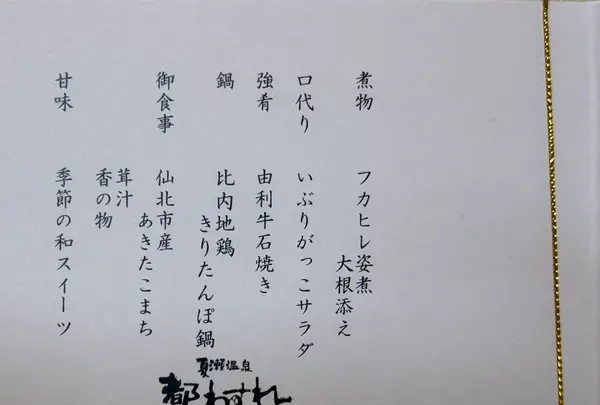 煮物　フカヒレ姿煮
大根添え
口代り　いぶりがっこサラダ
強肴　由利牛石焼き
鍋　比内地鶏
きりたんぽ鍋
御食事　仙北市産
あきたこまち
茸汁
香の物
甘味　季節の和スイーツ
夏瀬温泉
都わすれ